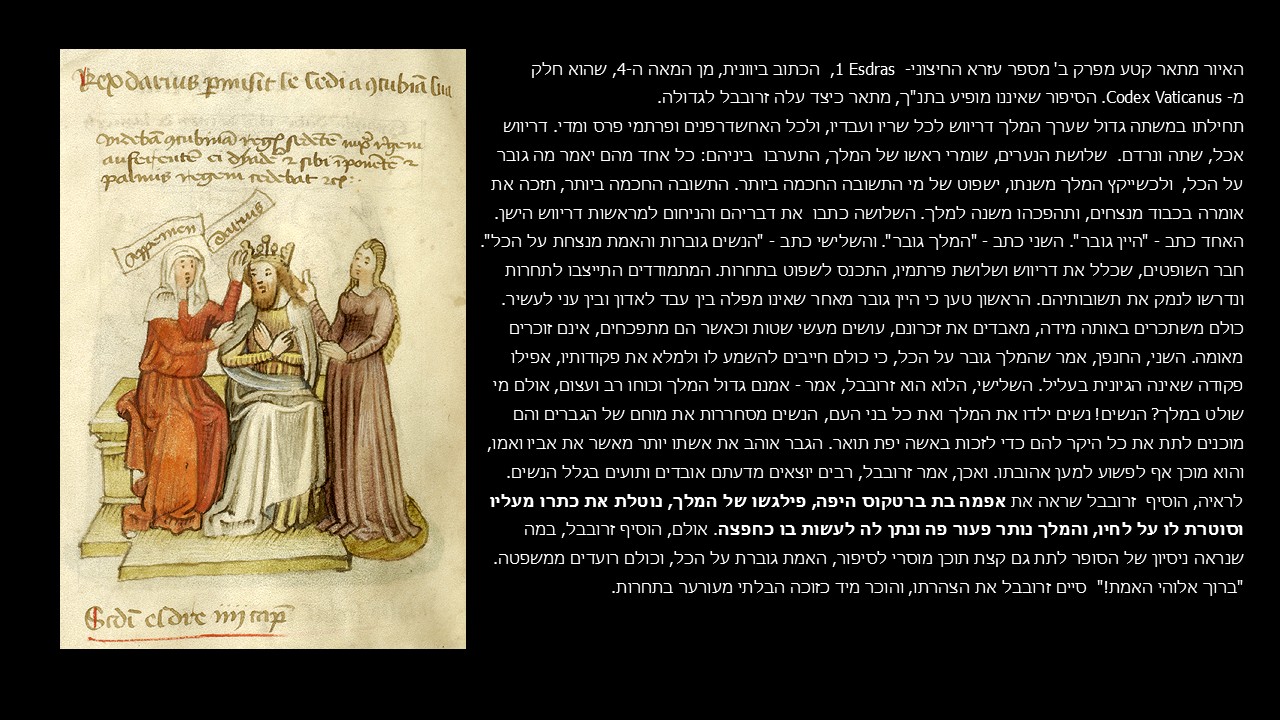 האיור מתאר קטע מפרק ב' מספר עזרא החיצוני- 1 Esdras, הכתוב ביוונית, מן המאה ה-4, שהוא חלק
מ- Codex Vaticanus. הסיפור שאיננו מופיע בתנ"ך, מתאר כיצד עלה זרובבל לגדולה.
תחילתו במשתה גדול שערך המלך דריווש לכל שריו ועבדיו, ולכל האחשדרפנים ופרתמי פרס ומדי. דריווש
אכל, שתה ונרדם. שלושת הנערים, שומרי ראשו של המלך, התערבו ביניהם: כל אחד מהם יאמר מה גובר
על הכל, ולכשייקץ המלך משנתו, ישפוט של מי התשובה החכמה ביותר. התשובה החכמה ביותר, תזכה את
אומרה בכבוד מנצחים, ותהפכהו משנה למלך. השלושה כתבו את דבריהם והניחום למראשות דריווש הישן.
האחד כתב - "היין גובר". השני כתב - "המלך גובר". והשלישי כתב - "הנשים גוברות והאמת מנצחת על הכל".
חבר השופטים, שכלל את דריווש ושלושת פרתמיו, התכנס לשפוט בתחרות. המתמודדים התייצבו לתחרות
ונדרשו לנמק את תשובותיהם. הראשון טען כי היין גובר מאחר שאינו מפלה בין עבד לאדון ובין עני לעשיר.
כולם משתכרים באותה מידה, מאבדים את זכרונם, עושים מעשי שטות וכאשר הם מתפכחים, אינם זוכרים
מאומה. השני, החנפן, אמר שהמלך גובר על הכל, כי כולם חייבים להשמע לו ולמלא את פקודותיו, אפילו
פקודה שאינה הגיונית בעליל. השלישי, הלוא הוא זרובבל, אמר - אמנם גדול המלך וכוחו רב ועצום, אולם מי
שולט במלך? הנשים! נשים ילדו את המלך ואת כל בני העם, הנשים מסחררות את מוחם של הגברים והם
מוכנים לתת את כל היקר להם כדי לזכות באשה יפת תואר. הגבר אוהב את אשתו יותר מאשר את אביו ואמו,
והוא מוכן אף לפשוע למען אהובתו. ואכן, אמר זרובבל, רבים יוצאים מדעתם אובדים ותועים בגלל הנשים.
לראיה, הוסיף זרובבל שראה את אפמה בת ברטקוס היפה, פילגשו של המלך, נוטלת את כתרו מעליו
וסוטרת לו על לחיו, והמלך נותר פעור פה ונתן לה לעשות בו כחפצה. אולם, הוסיף זרובבל, במה
שנראה ניסיון של הסופר לתת גם קצת תוכן מוסרי לסיפור, האמת גוברת על הכל, וכולם רועדים ממשפטה.
"ברוך אלוהי האמת!" סיים זרובבל את הצהרתו, והוכר מיד כזוכה הבלתי מעורער בתחרות.
Rex darius
regem cedebat
darius